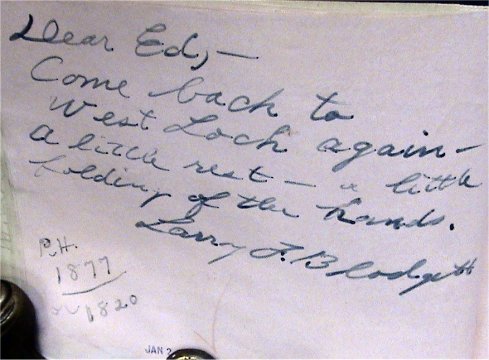 Dear Ed,—
Come back to
West Loch again—
a little rest— a little
folding of the hands.
Larry F. Blodgett
P.H.
1877
1820
JAN 2